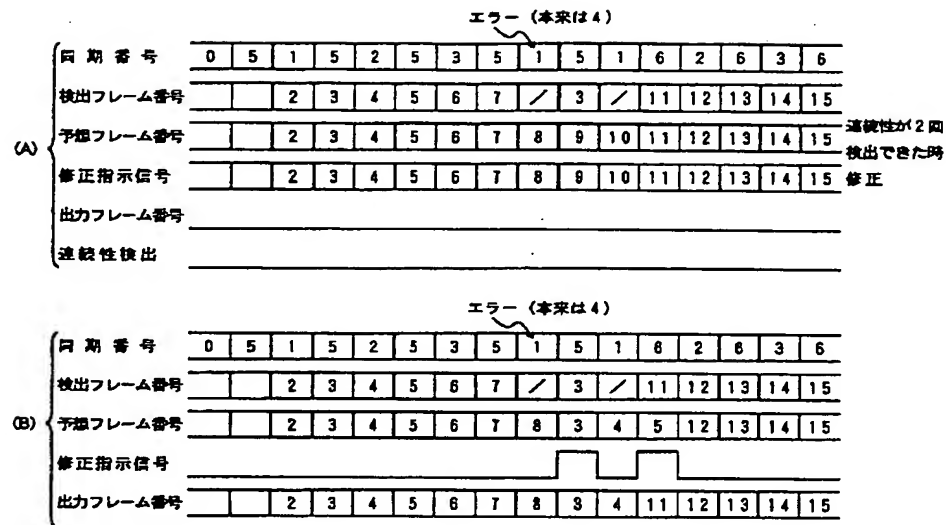 エラー(本来は4)
同期番号 0 5 1 5 2 5 3 5 1 5 1 6 2 6 3 6
検出フレーム番号 2 3 4 5 6 7 / 3 / 11 12 13 14 15
(A) 予想フレーム番号 2 3 4 5 6 7 8 9 10 11 12 13 14 15 連続性が2回
検出できた時
修正指示信号 2 3 4 5 6 7 8 9 10 11 12 13 14 15 修正
出力フレーム番号
連続性検出
エラー(本来は4)
同期番号 0 5 1 5 2 5 3 5 1 5 1 6 2 6 3 6
検出フレーム番号 2 3 4 5 6 7 / 3 / 11 12 13 14 15
(B) 予想フレーム番号 2 3 4 5 6 7 8 3 4 5 12 13 14 15
修正指示信号
出力フレーム番号 2 3 4 5 6 7 8 3 4 11 12 13 14 15